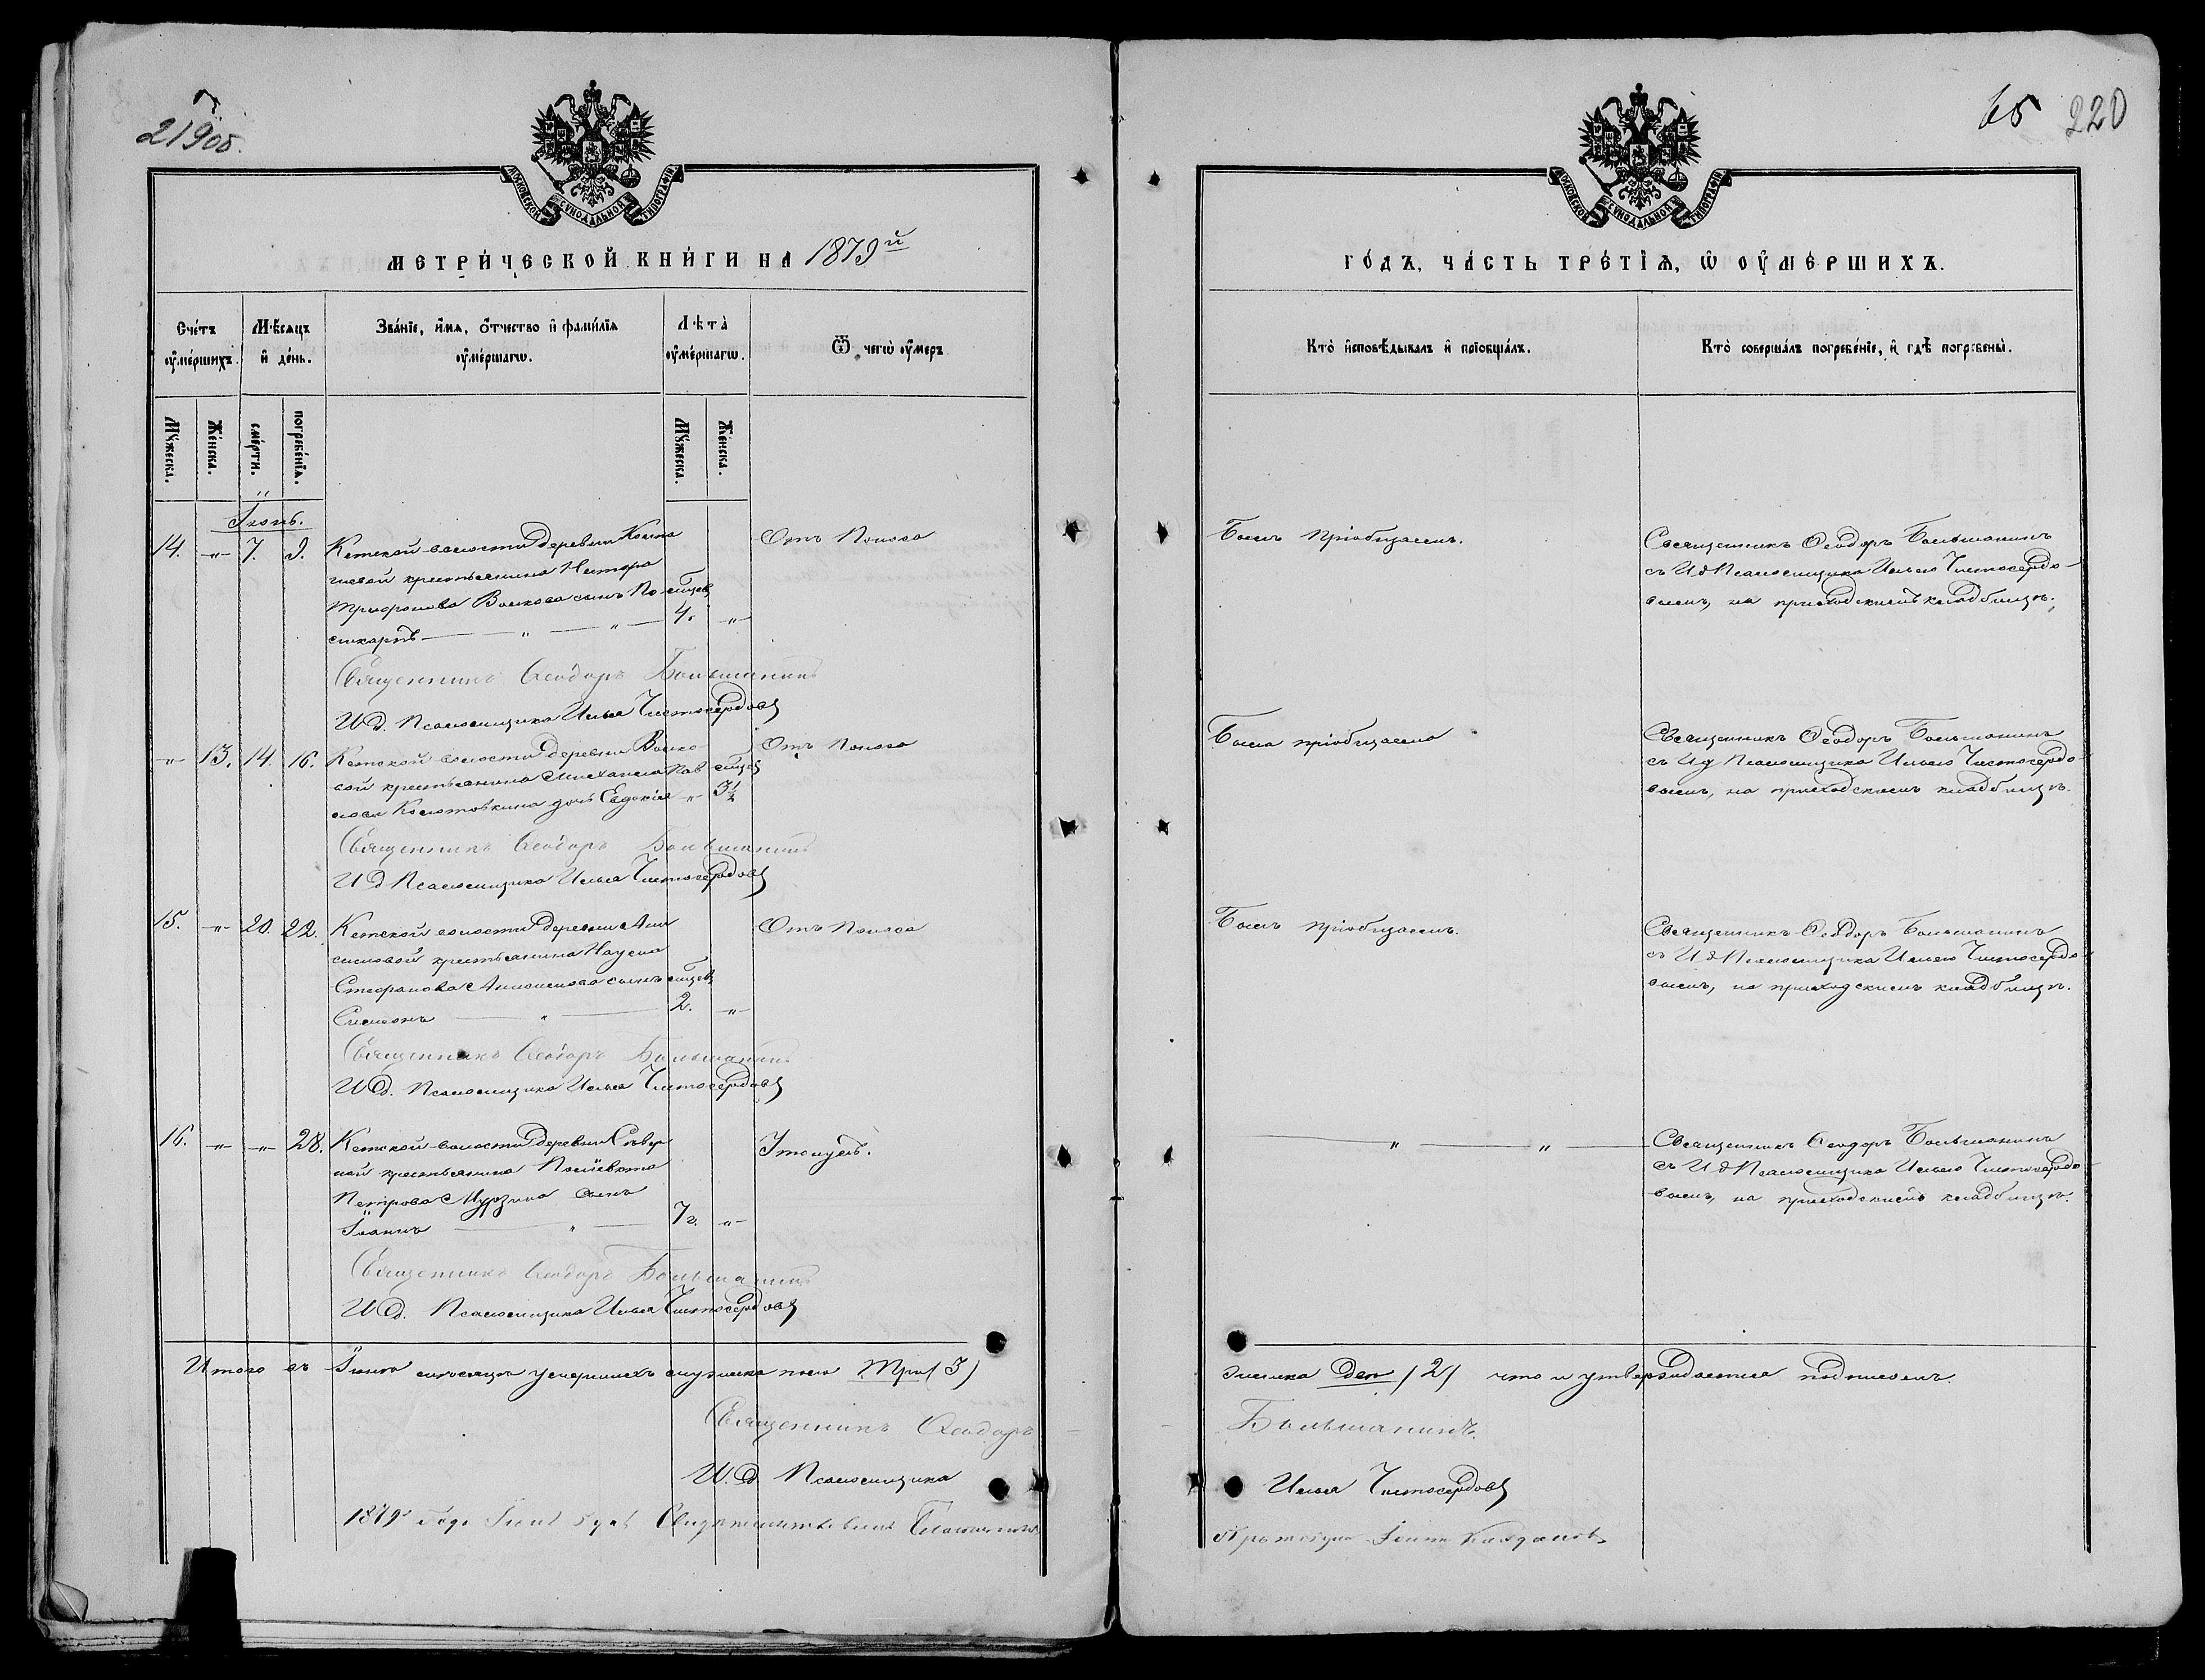 219 об.
65 220
МОСКОВСКОЙ СѴНОДАЛЬНОЙ ТИПОГРАФІИ
МЕТРИ́ЧЕСКОЙ КНИ́ГИ НА 1879й
Сче́тъ ᲂу҆ме́ршихъ.
Мѣ́сяцъ и҆ де́нь.
Зва́нїе, и҆́мя, ѻ҆́тчество и҆ фами́лїя ᲂу҆ме́ршагѡ.
Лѣта̀ ᲂу҆ме́ршагѡ.
Ѿ чегѡ̀ ᲂу҆́меръ
Мꙋ́жеска.
Же́нска.
сме́рти.
погребе́нїя.
Мꙋ́жеска.
Же́нска.
Іюнь.
14. „ 7. 9. Кетской волости деревни
крестьянина Нестора
Трифонова Волкова сынъ По-
ликарпъ 4. мѣсяцев „
Отъ Поноса
Священникъ Ѳеодоръ Большанинъ
И.д. Псаломщика Илья Чистосердовъ
„ 13. 14. 16. Кетской волости деревни Волко-
вой крестьянина Михаила Пав-
лова дочь Евдокія „ 3½ мѣсяц
Отъ Поноса
Священникъ Ѳеодоръ Большанинъ
И д Псаломщика Илья Чистосердовъ
15. „ 20. 22. Кетской волости деревни Ани-
симовой крестьянина Наума
Стефанова сынъ мѣсяцев
Симеонъ 2. „
Отъ Поноса
Священникъ Ѳеодоръ Большанинъ
И.д. Псаломщика Илья Чистосердовъ
16. „ „ 28. Кетской волости деревни
крестьянина Полиевкта
Петрова Мурзина сынъ
Іоаннъ 7 г. „
Утонулъ.
Священникъ Ѳеодоръ Большанинъ
И.д. Псаломщика Илья Чистосердовъ
Итого въ Іюнѣ мѣсяцѣ умершихъ мужеска пола Три (3)
Священникъ Ѳеодоръ
И.д. Псаломщика
1879 года
ГО́ДЪ, ЧА́СТЬ ТРЕ́ТЇѦ, Ѡ҆ ОУ҆МЕ́РШИХЪ.
Кто̀ и҆сповѣ́дывалъ и҆ прїѡбща́лъ.
Кто̀ соверша́лъ погребе́нїе, и҆ гдѣ̀ погребены̀.
Былъ пріобщаемъ.
Священникъ Ѳеодоръ Большанинъ
съ И д Псаломщика Ильею Чистосердо-
вымъ, на приходскомъ кладбищѣ.
Была пріобщаема
Священникъ Ѳеодоръ Большанинъ
съ И д Псаломщика Ильею Чистосердо-
вымъ, на приходскомъ кладбищѣ.
Былъ пріобщаемъ.
Священникъ Ѳеодоръ Большанинъ
съ И д Псаломщика Ильею Чистосердо-
вымъ, на приходскомъ кладбищѣ.
„ „
Священникъ Ѳеодоръ Большанинъ
съ И д Псаломщика Ильею Чистосердо-
вымъ, на приходскомъ кладбищѣ.
женска Две (2) что и утверждается подписомъ.
Большанинъ.
Илья Чистосердовъ